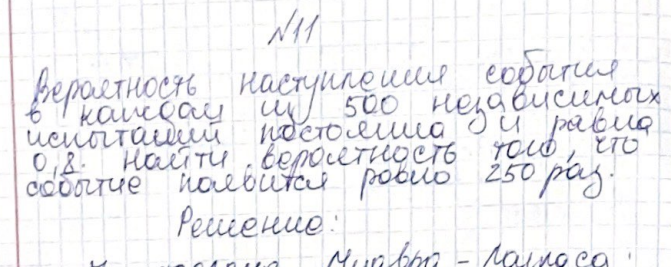 №11
Вероятность наступления события
в каждом из 500 независимых
испытаний постоянна и равна
0,8. Найти вероятность того, что
событие появится ровно 250 раз.
Решение:
Муавра - Лапласа: